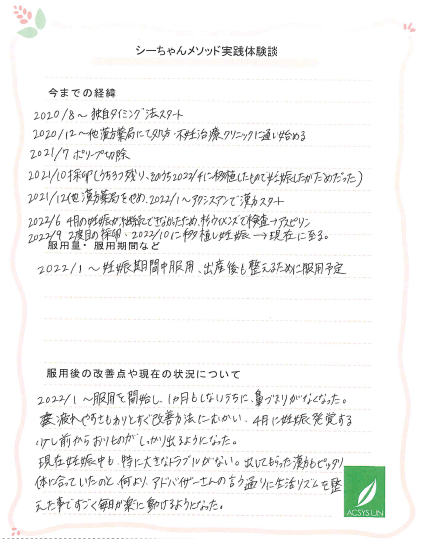 シーちゃんメソッド実践体験談
今までの経緯
2020/8～独自タイミング法スタート
2020/12～他漢方薬局にて処方・不妊治療クリニックに通い始める
2021/7 ポリープ切除
2021/10 採卵(うち5つ残り、そのうち2022/4に移植したもので妊娠したがだめだった)
2021/12他漢方薬局をやめ、2022/1～タクシスアンで漢方スタート
2022/6 4月の妊娠が継続できなかったため、杉ウイメンズで検査→アスピリン
2022/9 2度目の採卵・2022/10に移植し妊娠→現在に至る。
服用量・服用期間など
2022/1～妊娠期間中服用、出産後も整えるために服用予定
服用後の改善点や現在の状況について
2022/1～服用を開始し、1ヵ月もしないうちに、鼻づまりがなくなった。
疲れやすさもわりとすぐ改善方法にむかい、4月に妊娠発覚する
少し前からおりものがしっかり出るようになった。
現在妊娠中も、特に大きなトラブルがない。出してもらった漢方もピッタリ
体に合っていたのと、何より、アドバイザーさんの言う通りに生活リズムを整
えた事ですごく毎日が楽に動けるようになった。
ACSYS LIN